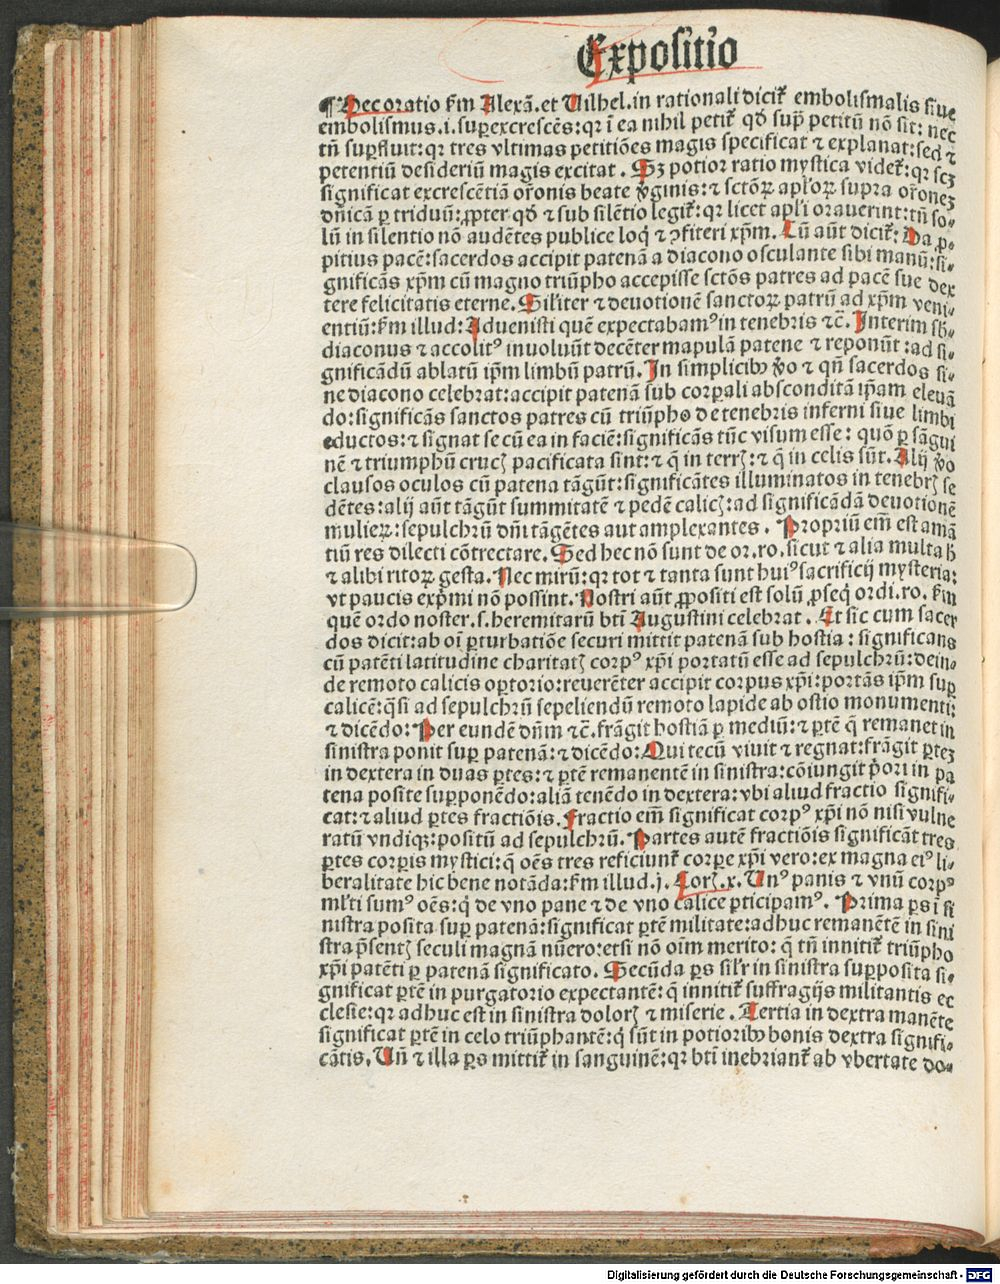 Expositio
¶ Hec oratio ẜm Alexā. et Uilhel. in rationali dicit᷑ embolismalis siue
embolismus .i. superexcrescēs: qr ī ea nihil petit᷑ qđ sup̄ petitū nō sit: nec
tn̄ suꝑfluit: qr tres vltimas petitiōes magis specificat ⁊ explanat: sed ⁊
petentiū desideriū magis excitat. Sꝫ potior ratio mystica videt᷑: qr scꝫ
significat excrescētiā or̄onis beate v̓ginis: ⁊ sctōꝝ apl'oꝝ supra or̄oneꝫ
dn̄icā ꝑ triduū: ꝓpter qđ ⁊ sub silētio legit᷑: qr licet apl'i orauerint: tn̄ so⸗
lū in silentio nō audētes publice loq̇ ⁊ ꝯfiteri xp̄m. Cū aūt dicit᷑: Da ꝓ⸗
pitius pacē: sacerdos accipit patenā a diacono osculante sibi manū: si⸗
gnificās xp̄m cū magno triūpho accepisse sctōs patres ad pacē sue dex
tere felicitatis eterne. Sil'iter ⁊ deuotionē sanctoꝝ patrū ad xp̄m veni⸗
entiū: ẜm illud: Aduenisti quē expectabamꝰ in tenebris ⁊c̄. Interim sb̄⸗
diaconus ⁊ accolitꝰ inuoluūt decēter mapulā patene ⁊ reponūt: ad si⸗
gnificādū ablatū ip̄m limbū patrū. In simplicibꝰ v̓o ⁊ qn̄ sacerdos si⸗
ne diacono celebrat: accipit patenā sub corꝑali absconditā ip̄am eleuā
do: significās sanctos patres cū triūpho de tenebris inferni siue limbi
eductos: ⁊ signat se cū ea in faciē: significās tūc visum esse: quō ꝑ sāgui
nē ⁊ triumphū crucꝭ pacificata sint: ⁊ q̄ in terrꝭ: ⁊ q̄ in celis sūt. Alij v̓o
clausos oculos cū patena tāgūt: significātes illuminatos in tenebrꝭ se
dētes: alij aūt tāgūt summitatē ⁊ pedē calicꝭ: ad significādā deuotionē
mulieꝝ: sepulchrū dn̄i tāgētes aut amplexantes. Propriū em̄ est amā
tiū res dilecti cōtrectare. Sed hec nō sunt de or. ro. sicut ⁊ alia multa h̄
⁊ alibi ritoꝝ gesta. Nec mirū: qr tot ⁊ tanta sunt huiꝰ sacrificij mysteria:
vt paucis exp̄mi nō possint. Nostri aūt ꝓpositi est solū ꝓseq̇ ordi. ro. ẜm
quē ordo noster .s. heremitarū bt̄i Augustini celebrat. Et sic cum sacer
dos dicit: ab oī ꝑturbatiōe securi mittit patenā sub hostia: significans
cū patēti latitudine charitatꝭ corpꝰ xp̄i portatū esse ad sepulchrū: dein⸗
de remoto calicis oꝑtorio: reuerēter accipit corpus xp̄i: portās ip̄m suꝑ
calicē: q̄si ad sepulchrū sepeliendū remoto lapide ab ostio monumenti:
⁊ dicēdo: Per eundē dn̄m ⁊c̄. frāgit hostiā ꝑ mediū: ⁊ ꝑtē q̄ remanet in
sinistra ponit suꝑ patenā: ⁊ dicēdo: Qui tecū viuit ⁊ regnat: frāgit ꝑteꝫ
in dextera in duas ꝑtes: ⁊ ꝑtē remanentē in sinistra: cōiungit p̓ori in pa
tena posite suꝑponēdo: aliā tenēdo in dextera: vbi aliud fractio signifi⸗
cat: ⁊ aliud ꝑtes fractiōis. Fractio em̄ significat corpꝰ xp̄i nō nisi vulne
ratū vndiqꝫ: positū ad sepulchrū. Partes autē fractiōis significāt tres
ꝑtes corꝑis mystici: q̄ oēs tres reficiunt᷑ corꝑe xp̄i vero: ex magna eiꝰ li⸗
beralitate hic bene notāda: ẜm illud .j. Corꝭ. x. Unꝰ panis ⁊ vnū corpꝰ
ml'ti sumꝰ oēs: q̇ de vno pane ⁊ de vno calice ꝑticipamꝰ. Prima ꝑs ī si
nistra posita suꝑ patenā: significat ꝑtē militātē: adhuc remanētē in sini
stra p̄sentꝭ seculi magnā nūero: etsi nō oīm merito: q̄ tn̄ innitit᷑ triūpho
xp̄i patēti ꝑ patenā significato. Secūda ꝑs sil'r in sinistra suꝑposita si⸗
gnificat ꝑtē in purgatorio expectantē: q̄ innitit᷑ suffragijs militantis ec
clesie: qr adhuc est in sinistra dolorꝭ ⁊ miserie. Tertia in dextra manēte
significat ꝑtē in celo triūphantē: q̇ sūt in potioribꝰ bonis dextra signifi⸗
cātis. Un̄ ⁊ illa ꝑs mittit᷑ in sanguinē: qr bt̄i inebriant᷑ ab vbertate do⸗
Digitalisierung gefördert durch die Deutsche Forschungsgemeinschaft - DFG